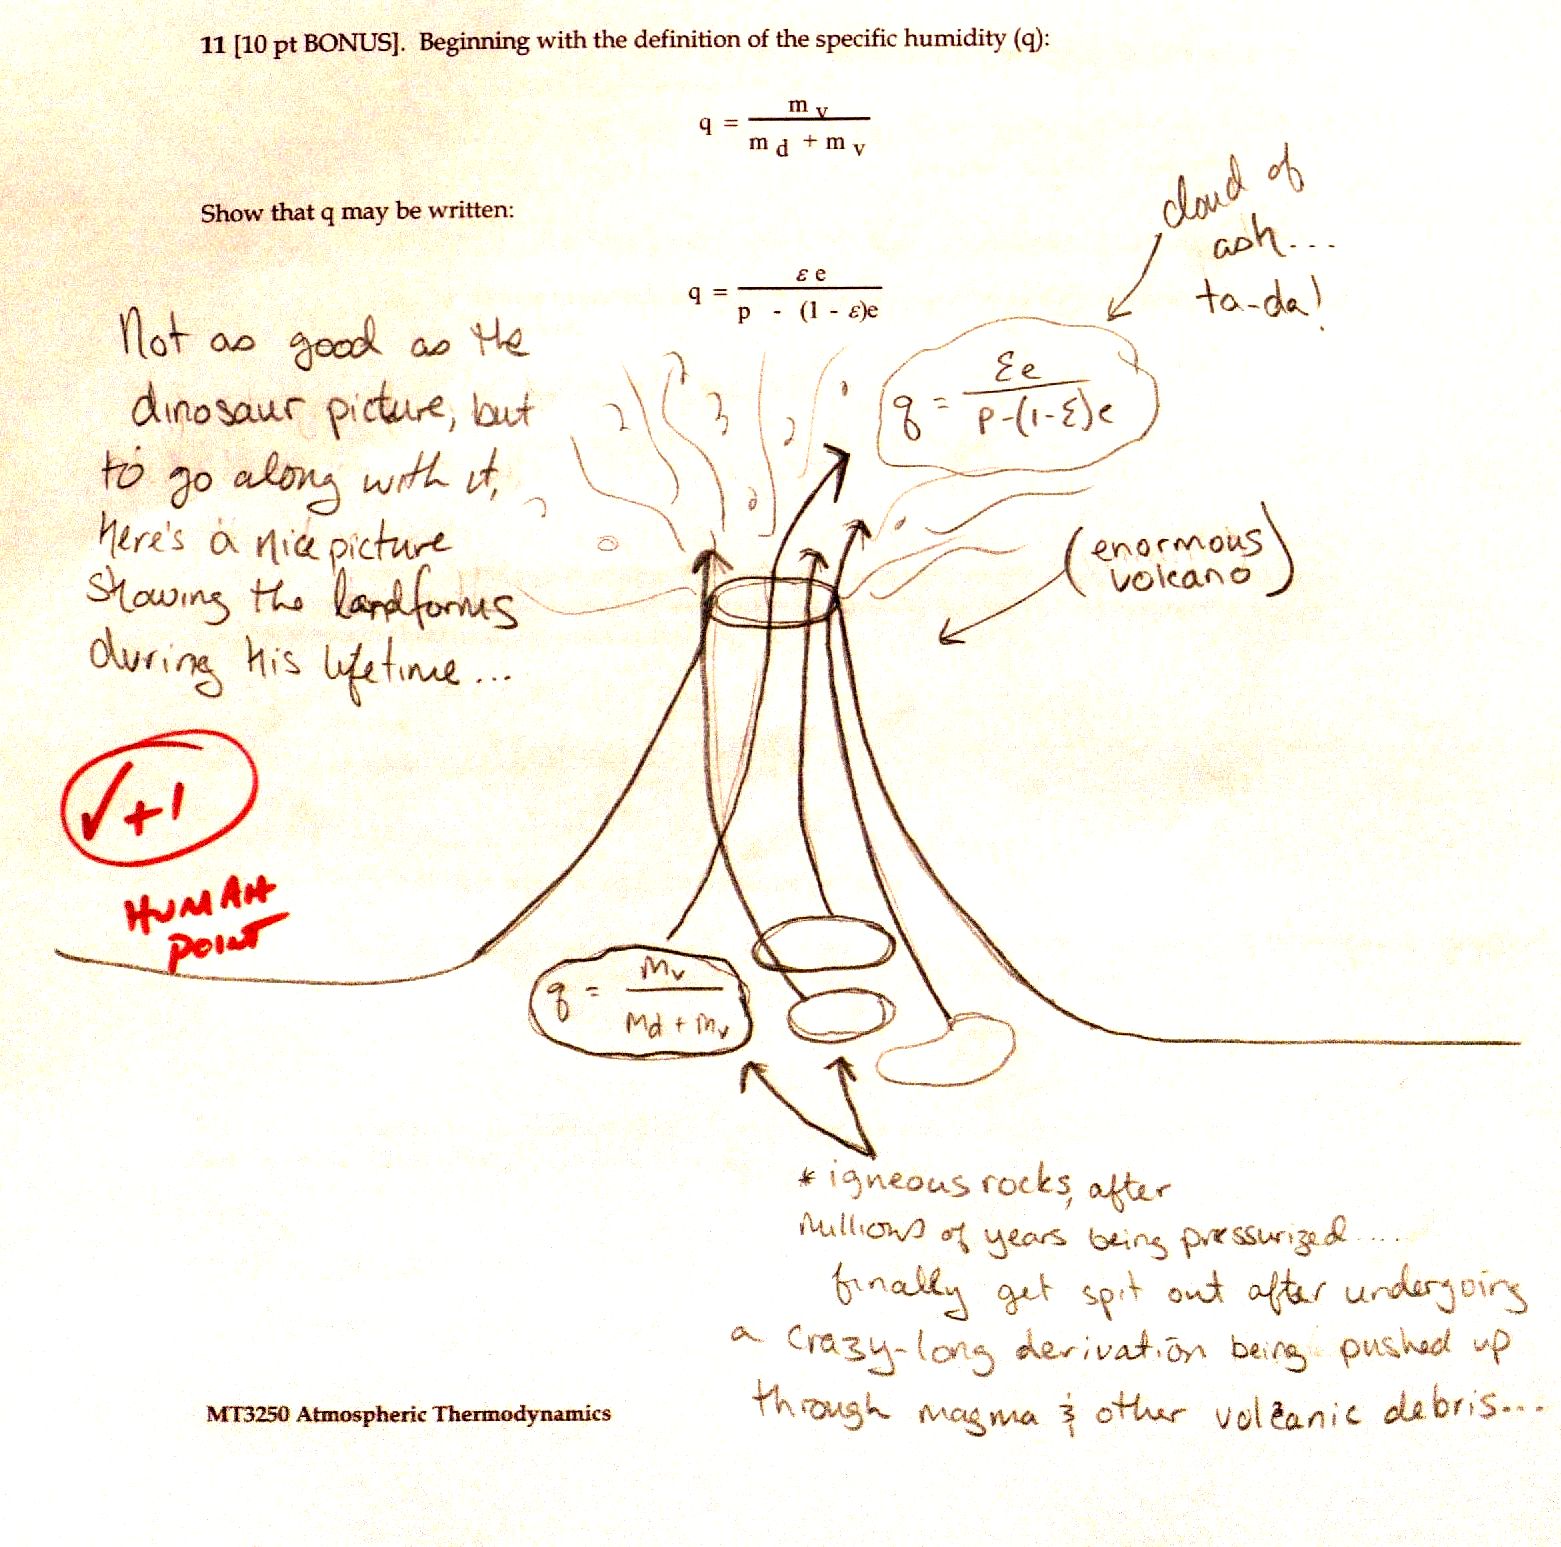 11 [10 pt BONUS]. Beginning with the definition of the specific humidity (q):
q = m v / m d + m v
Show that q may be written:
q = ε e / p - (1 - ε)e
cloud of
ash...
ta-da!
Not as good as the
dinosaur picture, but
to go along with it,
here's a nice picture
showing the landforms
during his lifetime...
q = εe / p-(1-ε)e
(enormous
volcano)
✓+1
HUMAN
POINT
q = Mv / Md + mv
* igneous rocks, after
millions of years being pressurized....
finally get spit out after undergoing
a crazy-long derivation being pushed up
through magma & other volcanic debris...
MT3250 Atmospheric Thermodynamics